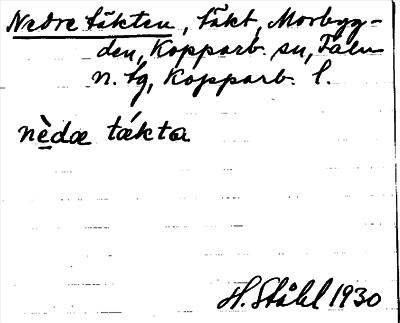 Nedre täkten, Täkt, Morbygg-
den, Kopparb. sn, Falu
n. tg, Kopparb. l.
nèdæ tækta
H. Ståhl 1930